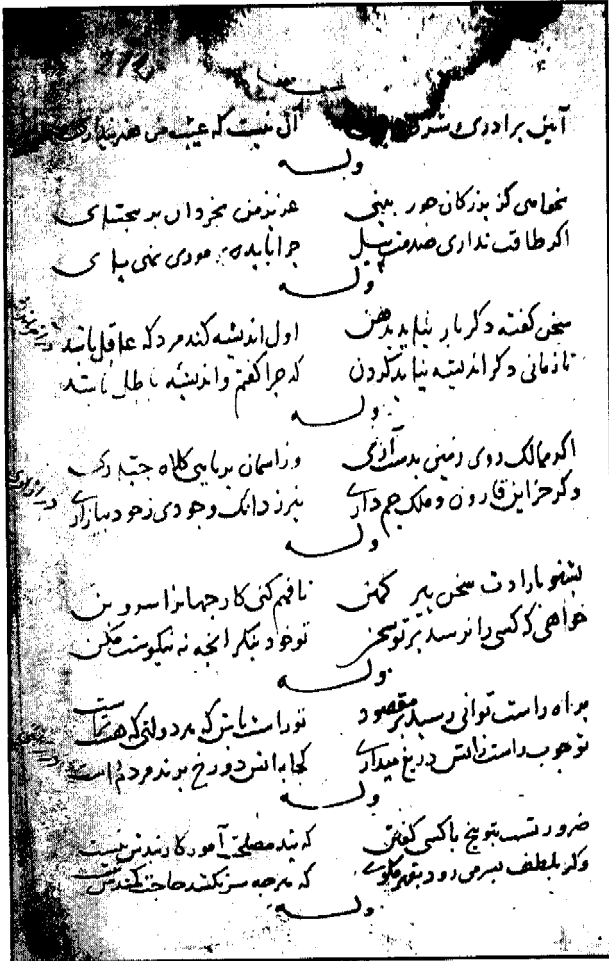 آیین برادری و شرط آن نیست که عیب من هنر پنداری
وله
نخواهی کز بزرگان جور بینی عزیز من بخردان بر مبخشای
اگر طاقت نداری صدمت پیل چرا باید بر موری نهی پای
وله
سخن گفته دگر باز نیاید بدهن اول اندیشه کند مرد که عاقل باشد
تا زمانی دگر اندیشه نباید کردن که چرا گفتم و اندیشه باطل باشد
وله
اگر ممالک روی زمین بدست آری وز آسمان بربایی کلاه جباری
وگر خزاین قارون و ملک جم داری نیرزد آنک وجودی ز خود بیازاری
وله
بشنو بارادت سخن پیر کهن تا فهم کنی کار جهانرا سر و بن
خواهی که کسی را نرسد بر تو سخن تو خود بنگر آنچه نه نیکوست مکن
وله
براه راست توانی رسید بر مقصود تو راست باش که هر دولتی که هست تراست
تو چوب راست ز آتش دریغ میداری کجا بآتش دوزخ برند مردم راست
وله
ضرورتست بتوبیخ با کسی گفتن که پند مصلحت آموز کاربندش نیست
وگر بلطف بسر می رود بقهر مگوی که هر چه سر نکشد حاجت کمندش نیست
وله